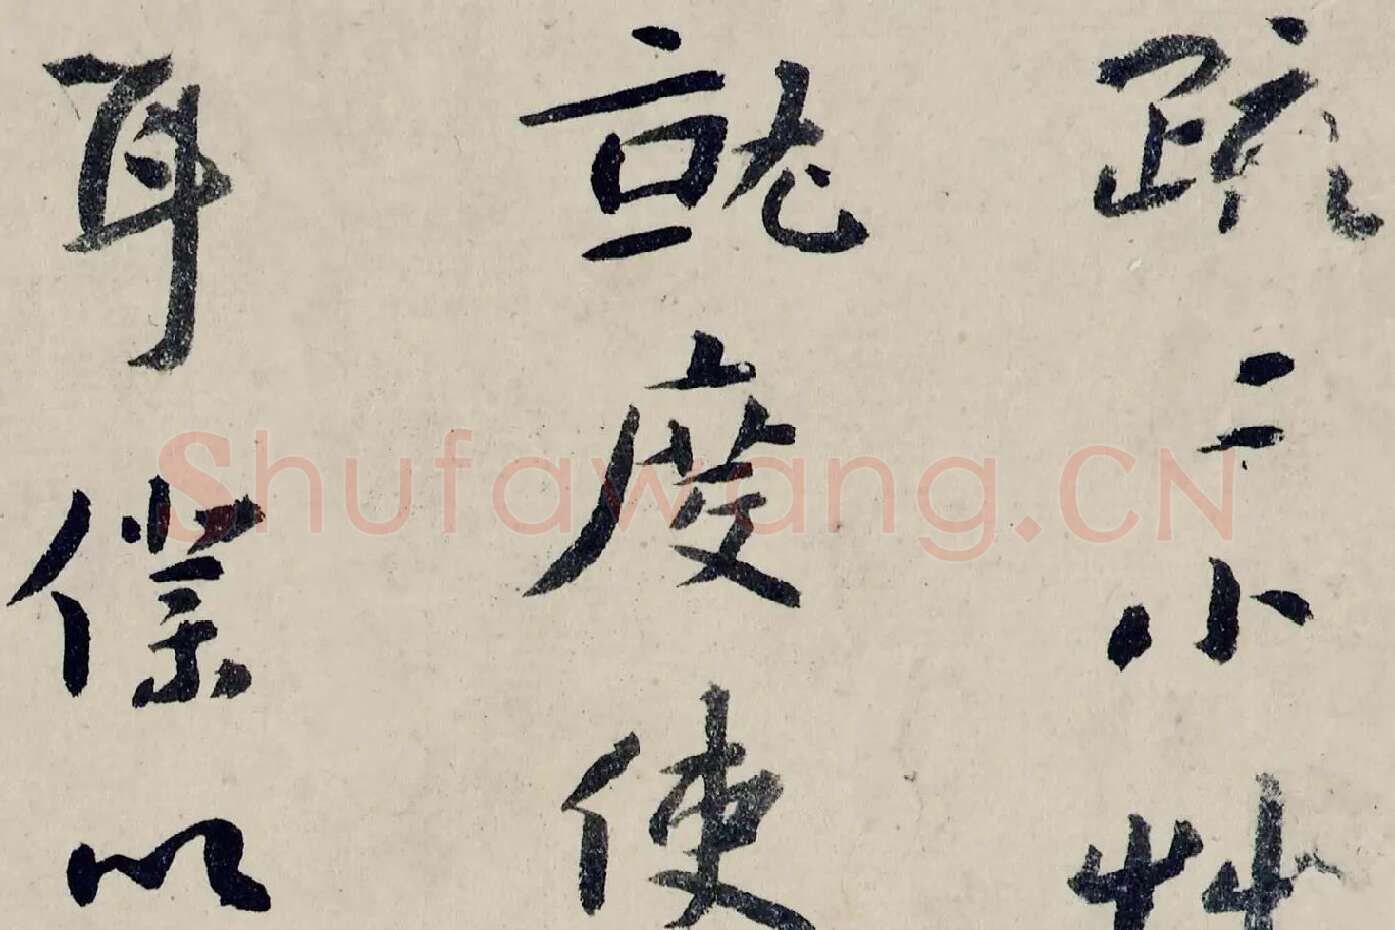 疏示
就度使
耳僕以
Shufawang.CN